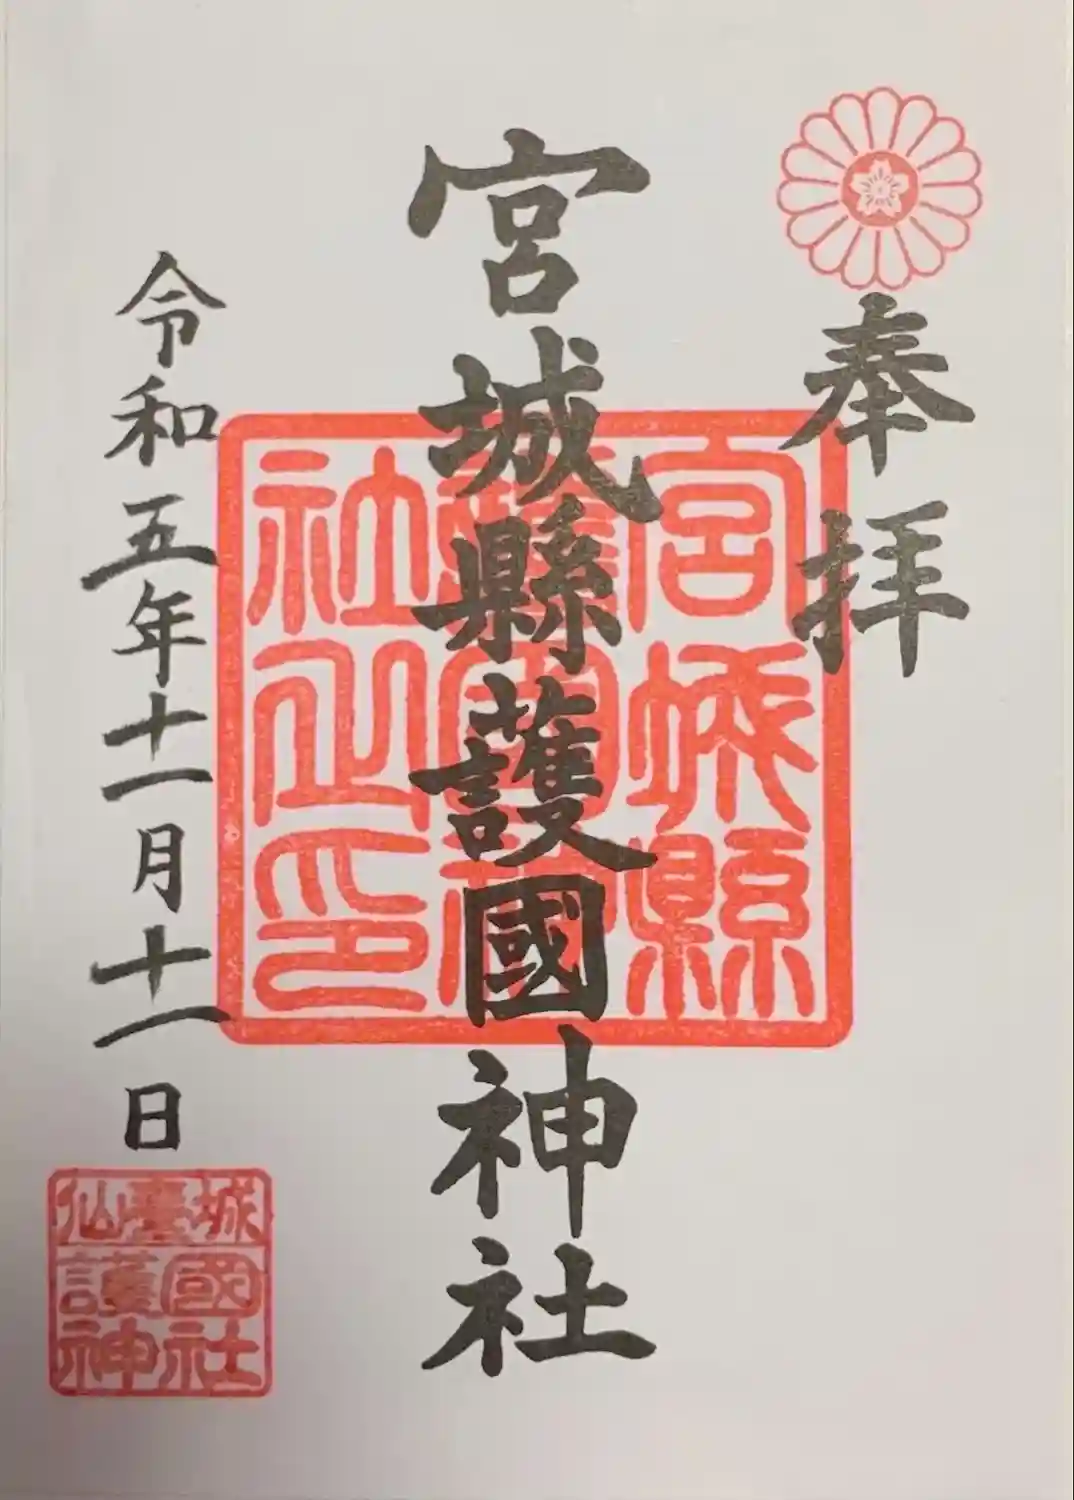 奉拝
宮城縣護國神社
宮城縣護國神社之印
令和五年十一月十一日
仙臺城
護國
神社